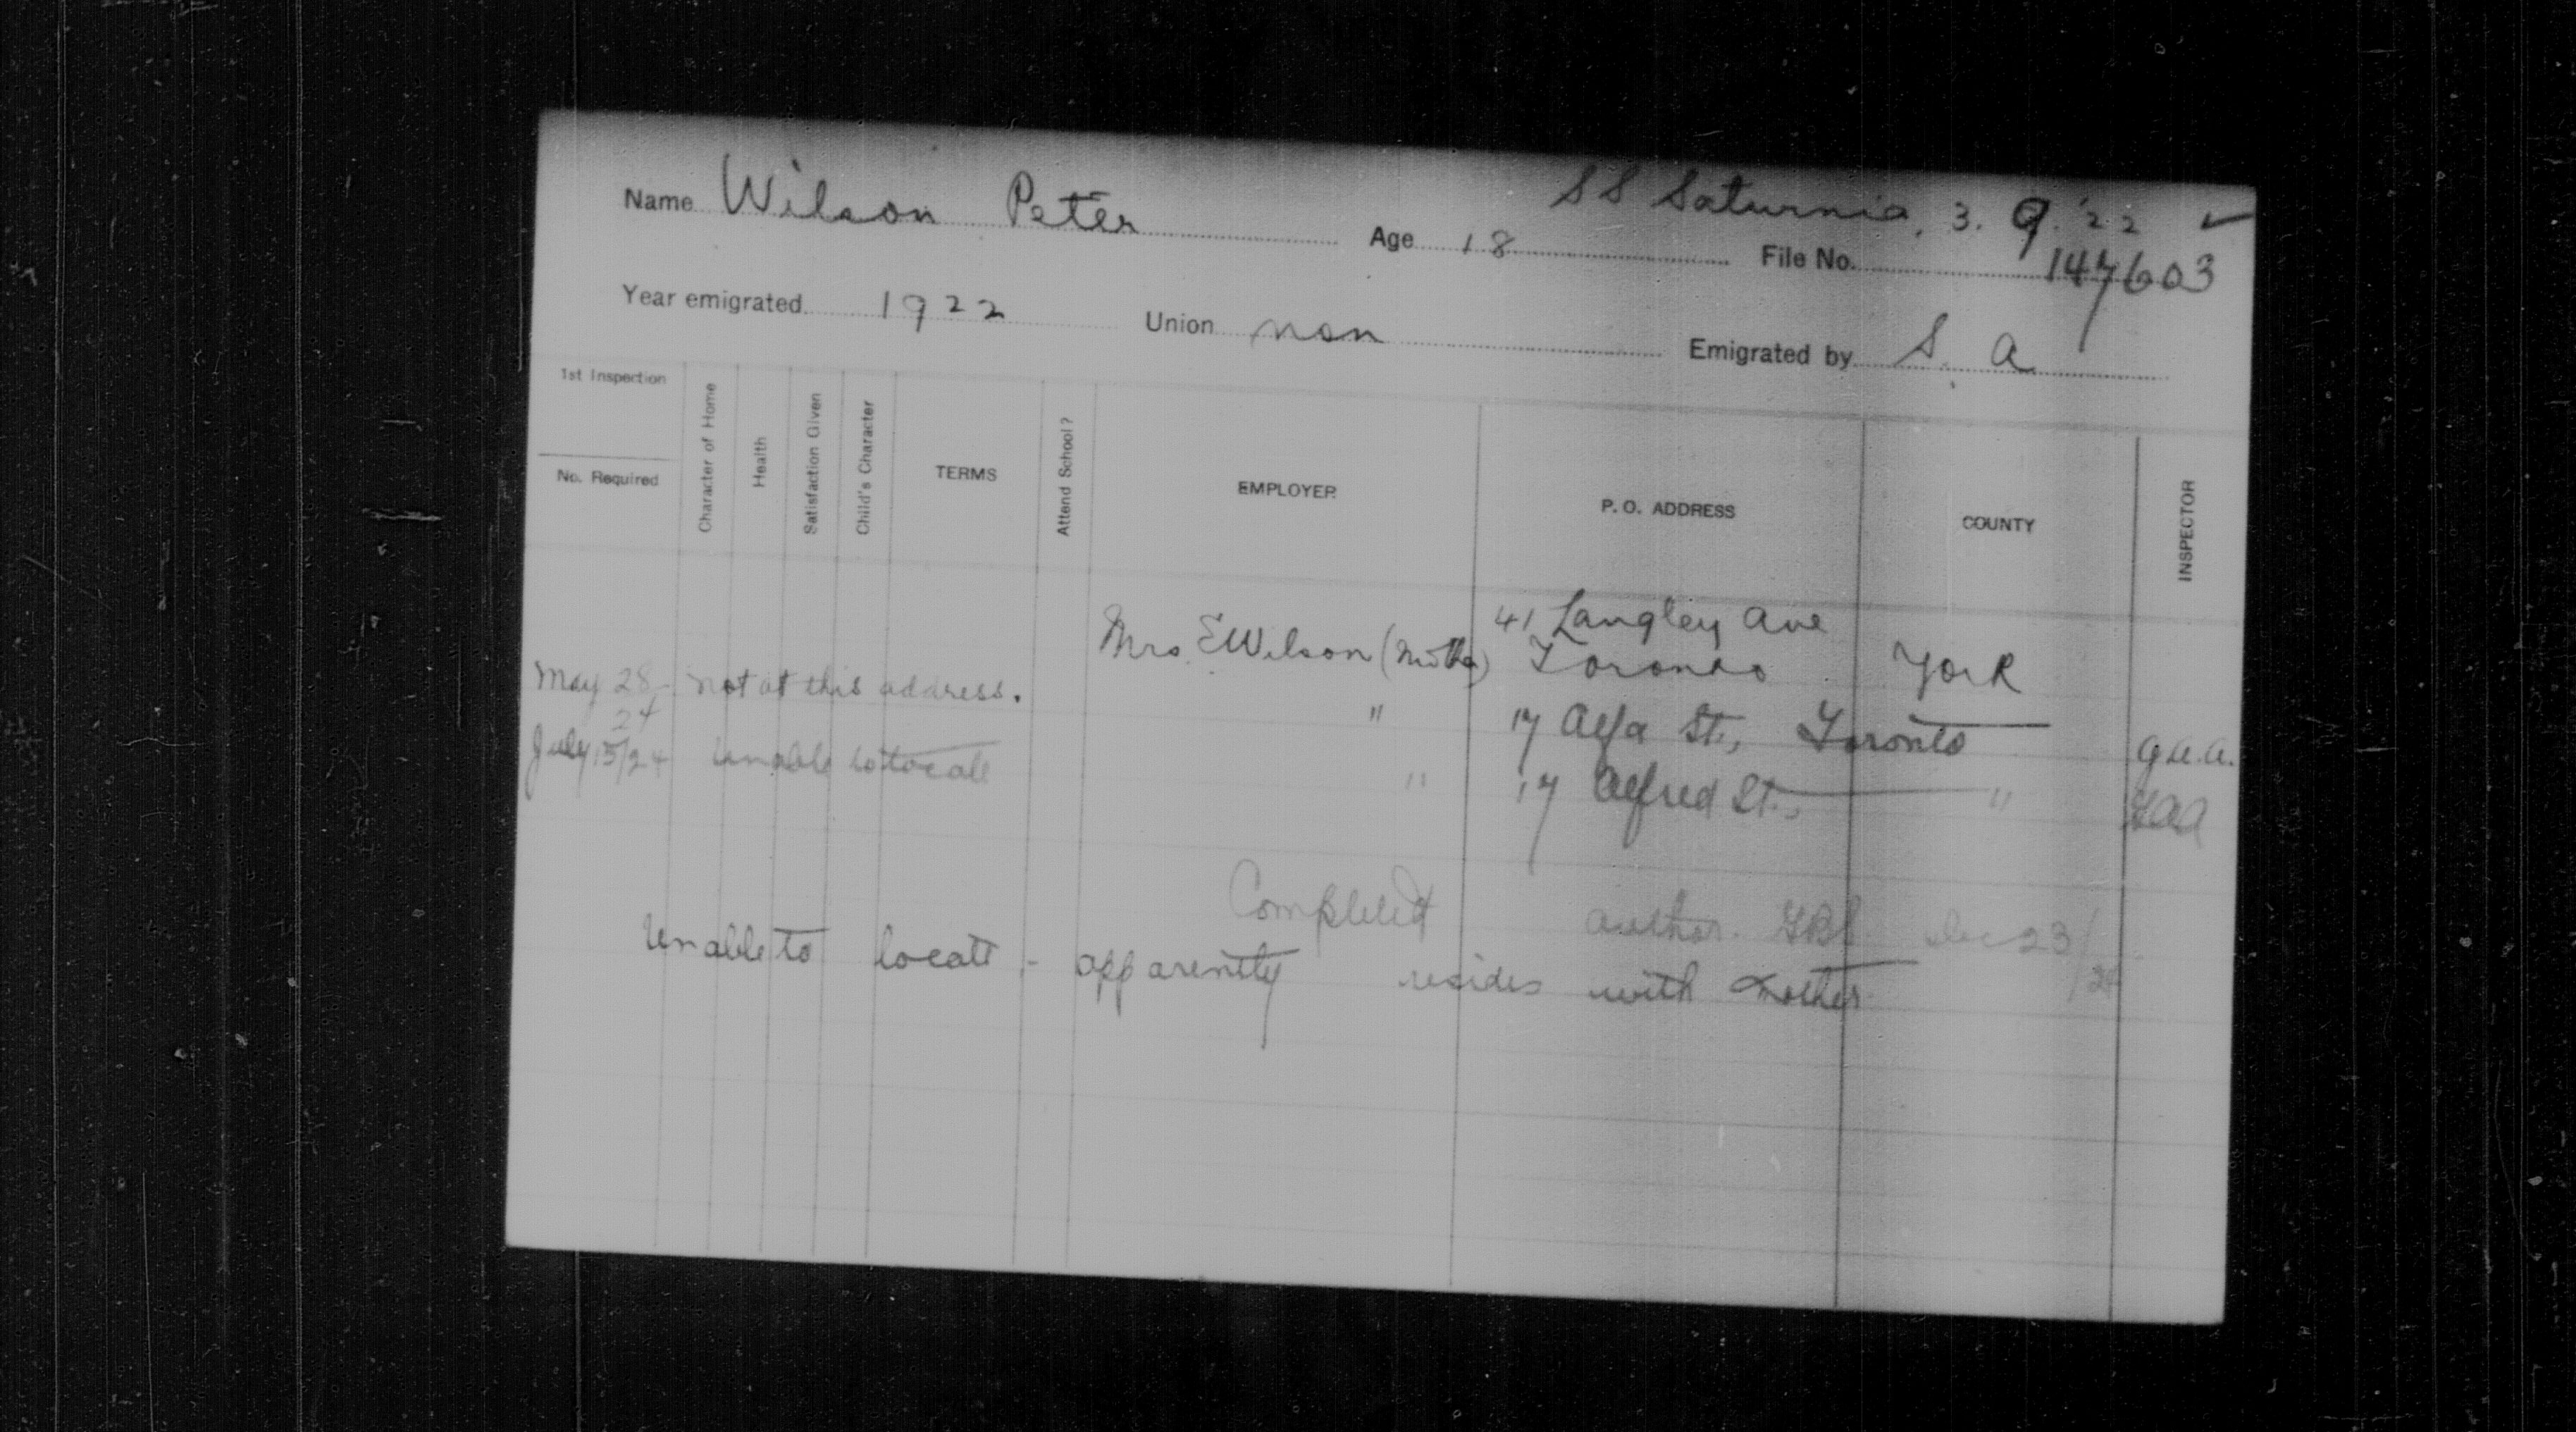 SS Saturnia, 3. 9. '22 ✓
Name Wilson Peter Age 18 File No. 147603
Year emigrated 1922 Union non Emigrated by S. A.
1st Inspection
No. Required
Character of Home
Health
Satisfaction Given
Child's Character
TERMS
Attend School?
EMPLOYER
P. O. ADDRESS
COUNTY
INSPECTOR
41 Langley Ave
Mrs. E Wilson (Mother) Toronto York
May 28- 24 not at this address. " 17 Alfa St., Toronto
July 15/24 Unable to locate " 17 Alfred St., "
Completed author. Dec 23/24
Unable to locate - apparently resides with mother